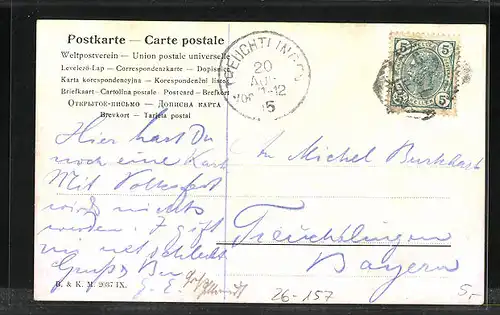 Postkarte — Carte postale
Weltpostverein — Union postale universelle
Levelező-Lap — Correspondenzkarte — Dopisn
Karta korespondencyjna — Korespondenční líst
Briefkaart — Cartolina postale — Postcard — Brefkort
ОТКРЫТОЕ-ПИСЬМО — ДОПИСНА КАРТА
Brevkort — Tarjeta postal
TREUCHTLINGEN
20
5
5 5
5 5
Hier hast Du
noch eine Karte
Mit Volksfest
wird nichts
werden.
Gruß
An Michel Burkhardt
Treuchtlingen
Bayern
B. & K. M. 2037 IX.
26-157
5,-